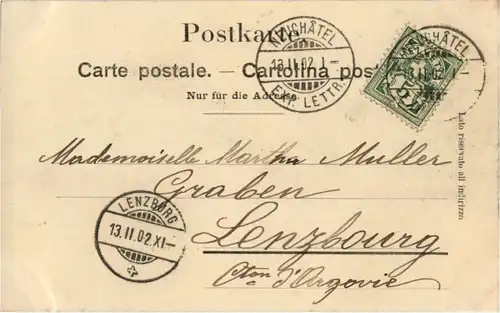 Postkarte.
Carte postale. — Cartolina post
Nur für die Adresse
NEUCHÂTEL
13.II.02.I–
EXP. LETTR.
NEUCHÂTEL
13.II.02.I–
Lato riservato all indirizzo.
Mademoiselle Martha Muller
Graben
Lenzbourg
Cton d'Argovie
LENZBURG
13.II.02.XI–